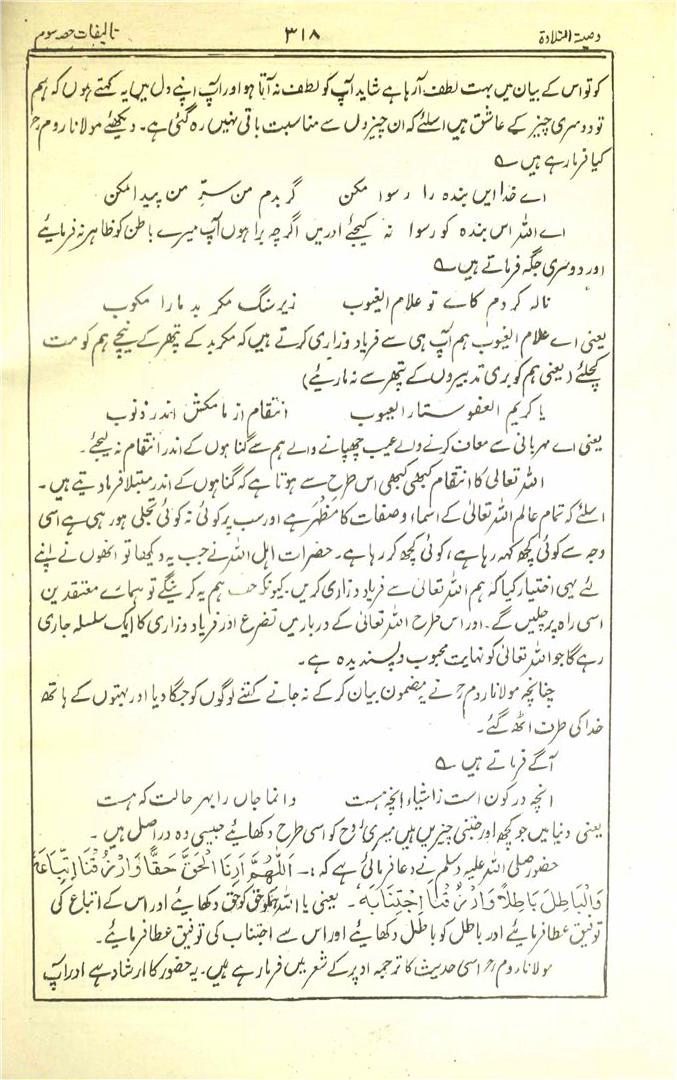 وصیۃ التلاوۃ ۳۱۸ تالیفات حصہ سوم
کو تو اس کے بیان میں بہت لطف آرہا ہے شاید آپ کو لطف نہ آتا ہو اور آپ اپنے دل میں یہ کہتے ہوں کہ ہم
تو دوسری چیز کے عاشق ہیں اسلئے کہ ان چیزوں سے مناسبت باقی نہیں رہ گئی ہے۔ دیکھئے مولانا روم رح
کیا فرما رہے ہیں ؎
اے خدا ایں بندہ را رسوا مکن گر بدم من سرِّ من پیدا مکن
اے اللہ اس بندہ کو رسوا نہ کیجئے اور میں اگرچہ برا ہوں آپ میرے باطن کو ظاہر نہ فرمائیے
اور دوسری جگہ فرماتے ہیں ؎
نالہ کردم کاے تو علام الغیوب زیر سنگ مکر بد مارا مکوب
یعنی اے علام الغیوب ہم آپ ہی سے فریاد و زاری کرتے ہیں کہ مکر بد کے پتھر کے نیچے ہم کو مت
کچلئے (یعنی ہم کو بری تدبیروں کے پتھر سے نہ ماریئے)
یا کریم العفو ستار العیوب انتقام از ما مکش اندر ذنوب
یعنی اے مہربانی سے معاف کرنے والے عیب چھپانے والے ہم سے گناہوں کے اندر انتقام نہ لیجئے۔
اللہ تعالی کا انتقام کبھی کبھی اس طرح سے ہوتا ہے کہ گناہوں کے اندر مبتلا فرما دیتے ہیں۔
اسلئے کہ تمام عالم اللہ تعالیٰ کے اسماء و صفات کا مَظْہَر ہے اور سب پر کوئی نہ کوئی تجلی ہو رہی ہے اسی
وجہ سے کوئی کچھ کہہ رہا ہے، کوئی کچھ کر رہا ہے۔ حضرات اہل اللہ نے جب یہ دیکھا تو انھوں نے اپنے
لئے یہی اختیار کیا کہ ہم اللہ تعالیٰ سے فریاد و زاری کریں۔ کیونکہ جب ہم یہ کرینگے تو ہمارے معتقدین
اسی راہ پر چلیں گے۔ اور اس طرح اللہ تعالیٰ کے دربار میں تضرع اور فریاد و زاری کا ایک سلسلہ جاری
رہے گا جو اللہ تعالیٰ کو نہایت محبوب و پسندیدہ ہے۔
چنانچہ مولانا روم رح نے یہ مضمون بیان کر کے نہ جانے کتنے لوگوں کو جگا دیا اور بہتوں کے ہاتھ
خدا کی طرف اٹھ گئے۔
آگے فرماتے ہیں ؎
انچہ در کون است ز اشیاء انچہ ہست وا نما جاں را بہر حالت کہ ہست
یعنی دنیا میں جو کچھ اور جتنی چیزیں ہیں میری روح کو اسی طرح دکھائیے جیسی وہ در اصل ہیں۔
حضور صلی اللہ علیہ وسلم نے دعا فرمائی ہے کہ :۔ اَللّٰهُمَّ اَرِنَا الْحَقَّ حَقًّا وَّارْزُقْنَا اتِّبَاعَهٗ
وَالْبَاطِلَ بَاطِلًا وَّارْزُقْنَا اجْتِنَابَهٗ۔ یعنی یا اللہ ہم کو حق کو حق دکھائیے اور اس کے اتباع کی
توفیق عطا فرمائیے اور باطل کو باطل دکھائیے اور اس سے اجتناب کی توفیق عطا فرمائیے۔
مولانا روم رح اسی حدیث کا ترجمہ اوپر کے شعر میں فرما رہے ہیں۔ یہ حضور کا ارشاد ہے اور آپ